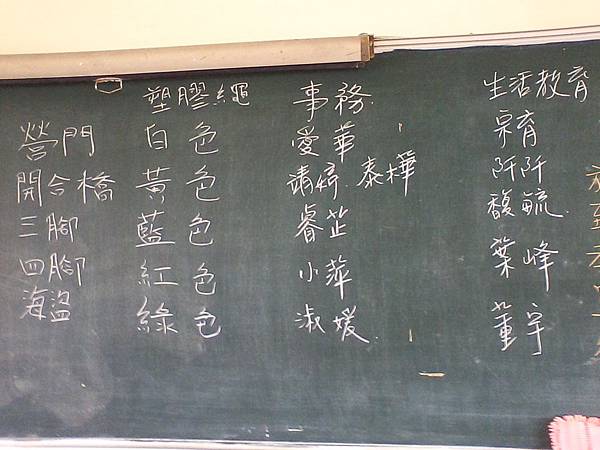 塑膠繩 事務 生活教育
營門 白色 愛華 宗育
開合橋 黃色 靖婷 泰樺 阡阡
三腳 藍色 睿芷 馥毓
四腳 紅色 小萍 葉峰
海盜 綠色 淑媛 董宇